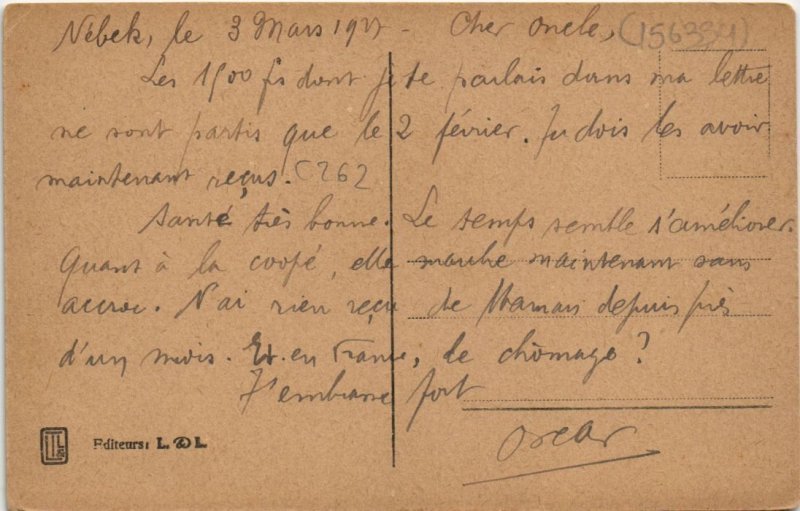 Nébek, le 3 Mars 1927 - Cher oncle, (156384)
Les 1500 fs dont je te parlais dans ma lettre
ne sont partis que le 2 février. Tu dois les avoir
maintenant reçus. C262
Santé très bonne. Le temps semble s'améliorer.
Quant à la coopé, elle marche maintenant sans
accroc. N'ai rien reçu de Maman depuis près
d'un mois. Et en France, le chômage ?
T'embrasse fort
Oscar
Editeurs: L. & L.